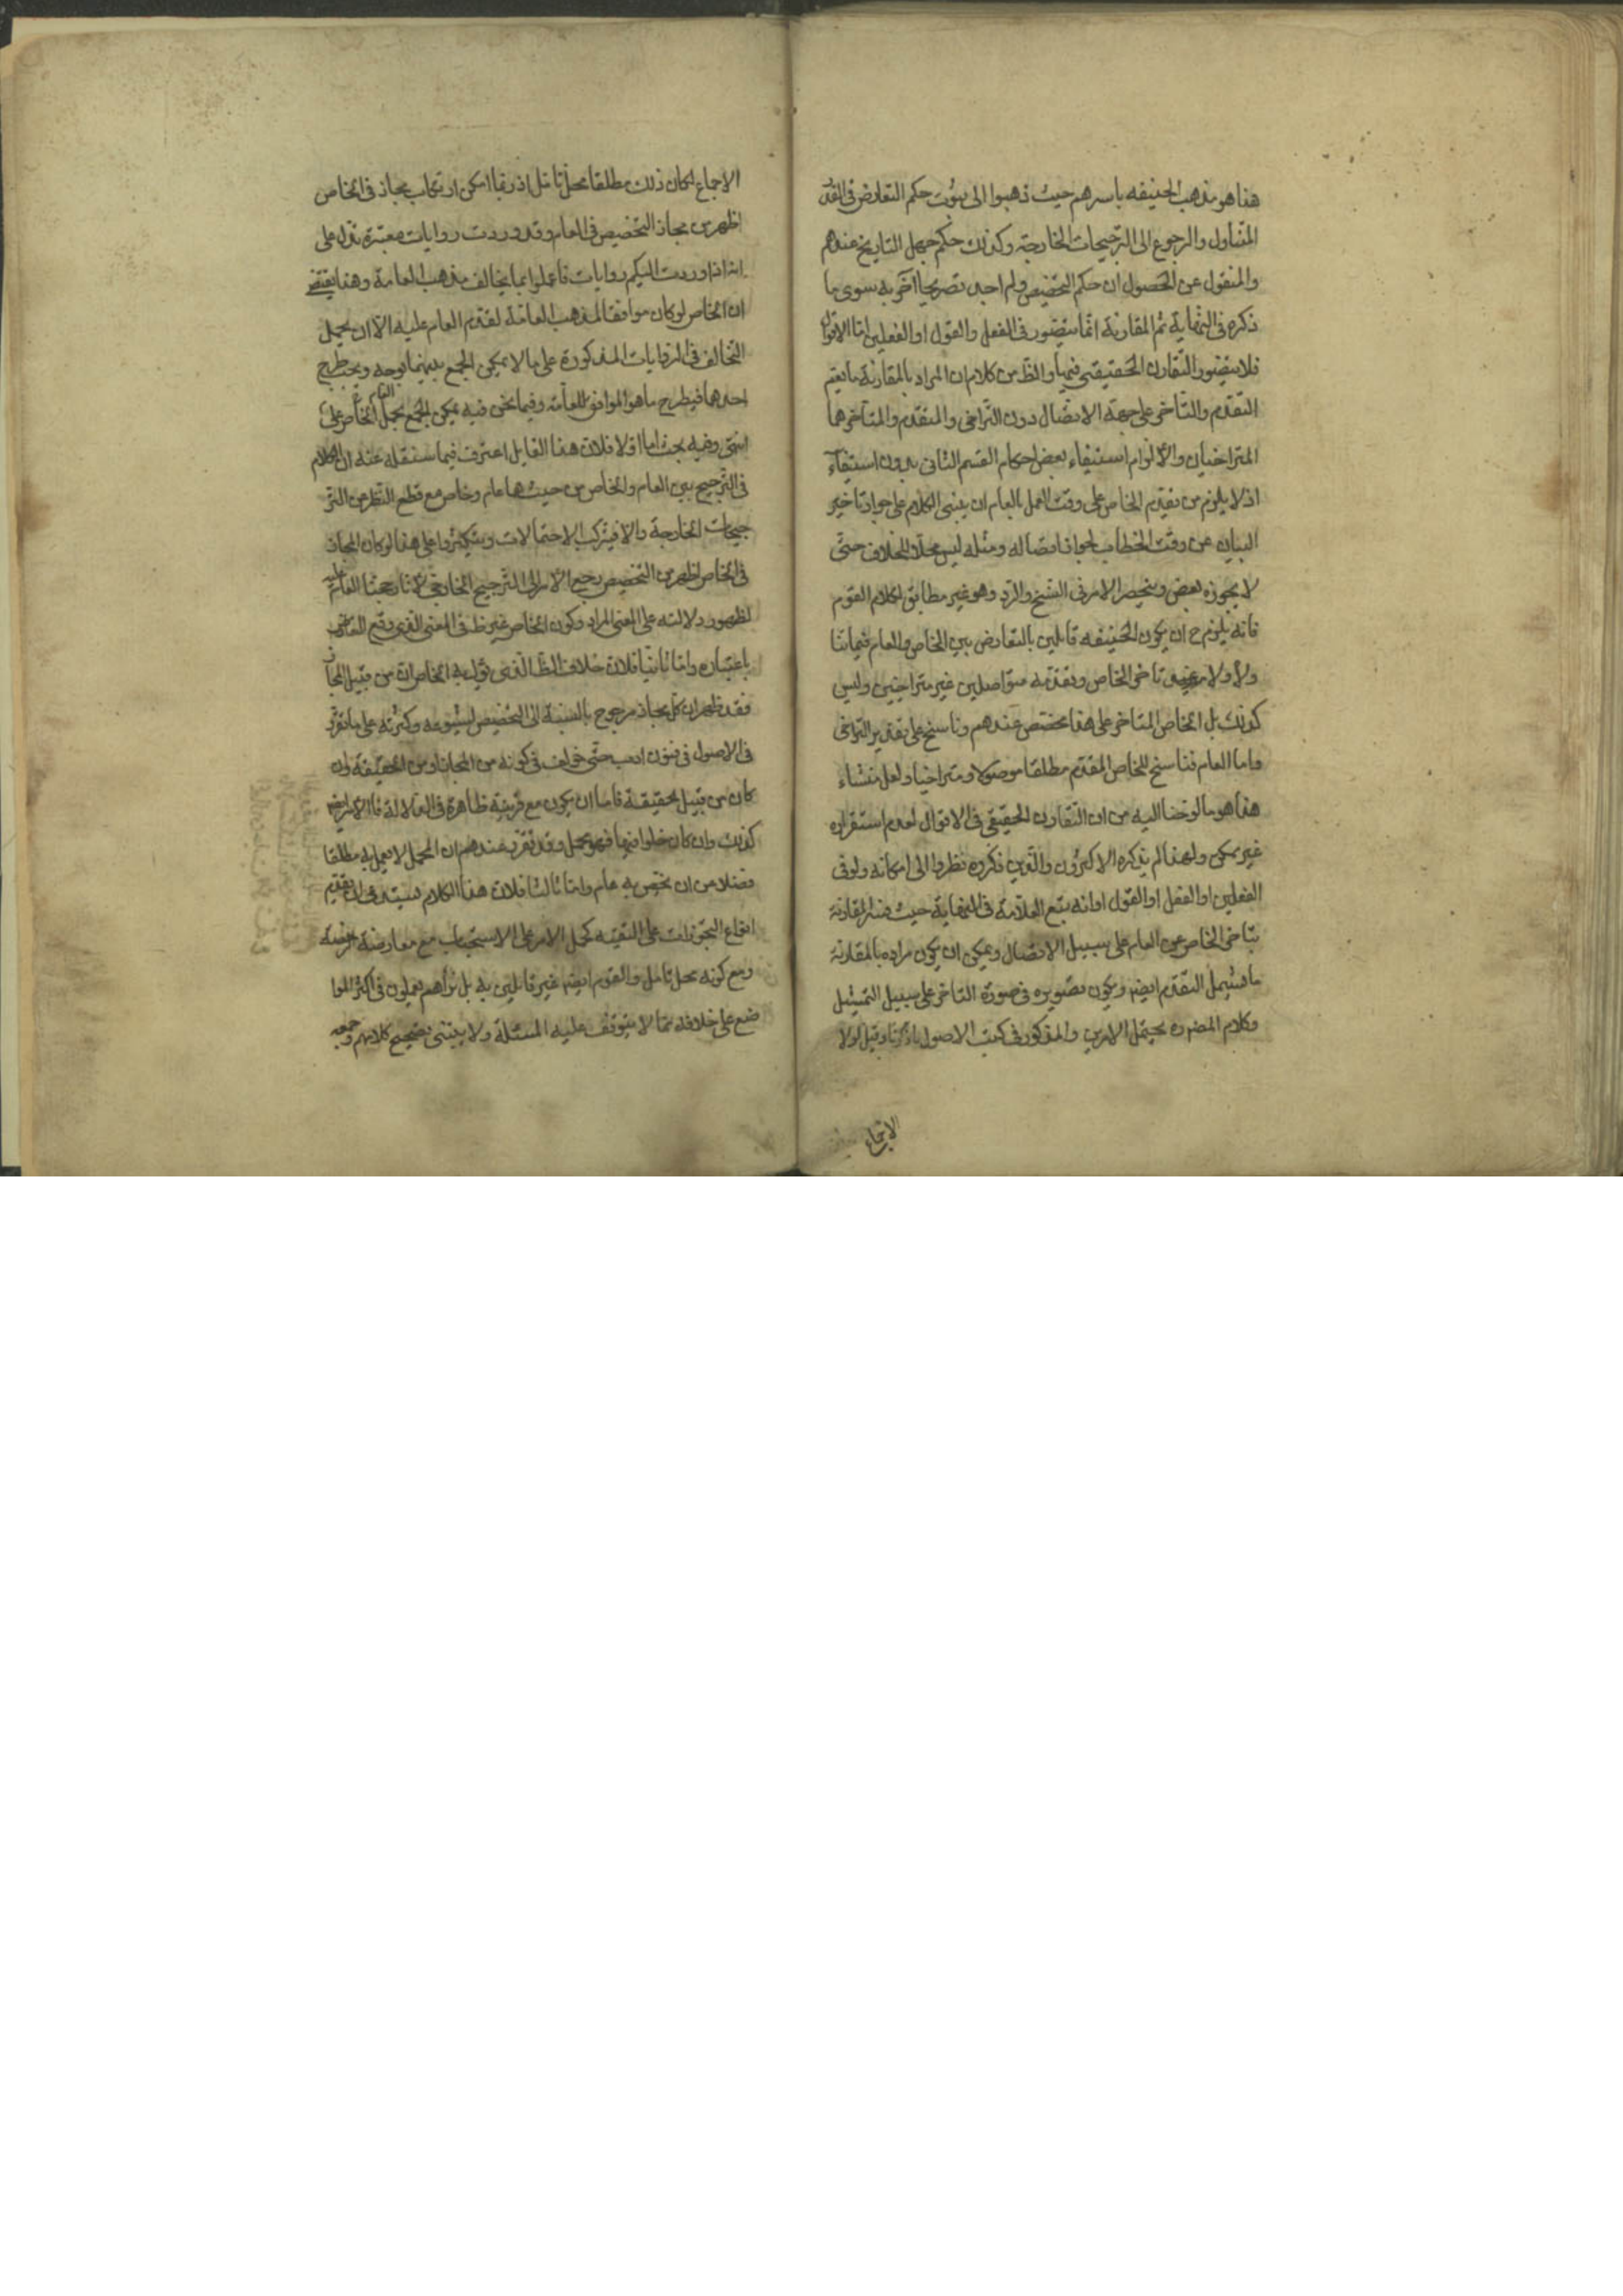 هذا هو مذهب الحنيفه باسرهم حيث ذهبوا الى ثبوت حكم التعارض فى القدر
المتناول والرجوع الى الترجيحات الخارجة وكذلك حكم جهل التاريخ عندهم
والمنقول عن المحصول ان حكم التخصيص ولم اجد تصريحا آخر به سوى ما
ذكره فى النهاية ثم المقارنة انما يتصور فى الفعل والقول او الفعلين اما الاقوال
فلا يتصور التقارن الحقيقى فيها والظ من كلام ان المراد بالمقارنة ما يعم
التقدم والتاخر على جهة الاتصال دون التراخى والمتقدم والمتاخر هما
المتراخيان والا لزم استيفاء بعض احكام القسم الثانى بدون استيفاء
اذ لا يلزم من تقديم الخاص على وقت العمل بالعام ان يبنى الكلام على جواز تاخير
البيان عن وقت الخطاب لجواز اتصاله ومثله ليس محلا للخلاف حتى
لا يجوزه بعض وينحصر الامر فى النسخ والرد وهو غير مطابق لكلام القوم
فانه يلزم ح ان يكون الحنيفه قايلين بالتعارض بين الخاص والعام فيما اذا
تاخر الخاص وتقدمه متواصلين غير متراخيين وليس
كذلك بل الخاص المتاخر على هذا مخصص عندهم وناسخ على تقدير التراخى
واما العام فناسخ للخاص المقدم مطلقا موصولا ومتراخيا ولعل منشاء
هذا هو ما لوحنا اليه من ان التقارن الحقيقى فى الاقوال لعدم استقراره
غير ممكن ولهذا لم يذكره الاكثرون والذين ذكروه نظروا الى امكانه ولو فى
الفعلين او الفعل او القول او انه تبع العلامة فى النهاية حيث فسر المقارنة
بتاخر الخاص عن العام على سبيل الاتصال ويمكن ان يكون مراده بالمقارنة
ما يشمل التقدم ايضا ويكون تصويره فى صورة التاخر على سبيل التمثيل
وكلام المصره يحتمل الامرين والمذكور فى كتب الاصول ما ذكرنا وقيل لولا
الاجماع
الاجماع لكان ذلك مطلقا محل تامل اذ ربما امكن ارتكاب مجاز فى الخاص
اظهر من مجاز التخصيص فى العام وقد وردت روايات معتبرة تدل على
انه اذا وردت اليكم روايات فاعملوا بما يخالف مذهب العامة وهذا يقتضى
ان الخاص لو كان موافقا لمذهب العامة لقدم العام عليه الا ان يحمل
التخالف فى الروايات المذكورة على ما لا يمكن الجمع بينهما بوجه ويجب طرح
احدهما فيطرح ما هو الموافق للعامة وفيما نحن فيه يمكن الجمع بحمل العام الخاص على
انتهى وفيه بحث اما اولا فلان هذا القايل اعترف فيما سننقله عنه ان الكلام
فى الترجيح بين العام والخاص من حيث هما عام وخاص مع قطع النظر عن التر
جيحات الخارجة والا فيتركب الاحتمالات ويتكثر وعلى هذا لو كان المجاز
فى الخاص اظهر من التخصيص رجع الامر الى الترجيح الخارجى لانا رجحنا العام عليه
لظهور دلالته على المعنى المراد وكون الخاص غير ظ فى المعنى الذى وقع التعارض
باعتباره واما ثانيا فلان خلاف الظ الذى يؤل به الخاص ان من قبيل المجاز
فقد ظهر ان كل مجاز مرجوح بالنسبة الى التخصيص لشيوعه وكثرته على ما تقرر
فى الاصول فى فنون ادب حتى خولف فى كونه من المجاز او من الحقيقة وان
كان من قبيل الحقيقة فاما ان يكون مع قرينة ظاهرة فى الدلالة فالامر ايضا
كذلك وان كان خلوا منها فهو مجمل وقد تقرر عندهم ان المجمل لا يعمل به مطلقا
فضلا من ان يخص به عام واما ثالثا فلان هذا الكلام يستدعى ان تقديم
انواع التجوزات على التقيه كحمل الامر على الاستحباب مع معارضة
ومع كونه محل تامل والقوم ايضا غير قايلين به بل نراهم يعملون فى اكثر الموا
ضع على خلافه مما لا يتوقف عليه المسئلة ولا يبتنى تصحيح كلامهم